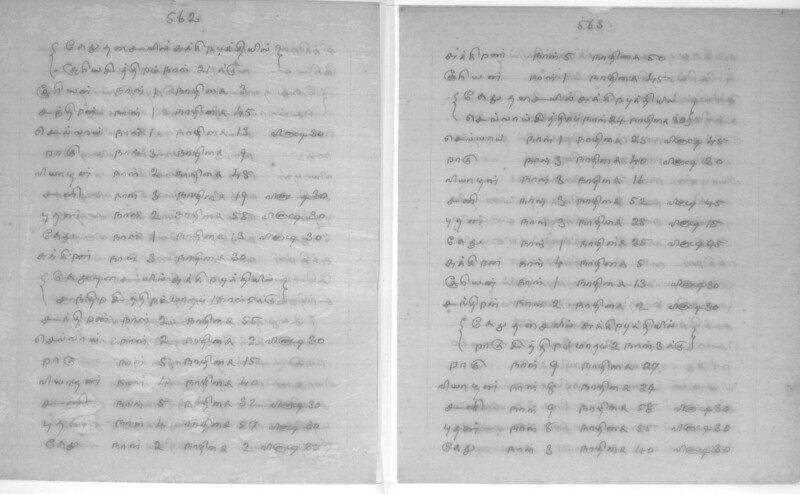 562
{ கேது தசையில் சுக்கிரபுக்தியில் }
சூரியன் நாள் 1 நாழிகை 3
சந்திரன் நாள் 1 நாழிகை 45
செவ்வாய் நாள் 1 நாழிகை 13 விநாடி 30
ராகு நாள் 3 நாழிகை 9
வியாழன் நாள் 2 நாழிகை 48
சனி நாள் 3 நாழிகை 19 விநாடி 30
புதன் நாள் 2 நாழிகை 58 விநாடி 30
கேது நாள் 1 நாழிகை 13 விநாடி 30
சுக்கிரன் நாள் 3 நாழிகை 30
{ கேது தசையில் சுக்கிரபுக்தியில்
சந்திரன் நாள் 2 நாழிகை 55
செவ்வாய் நாள் 2 நாழிகை 2 விநாடி 30
ராகு நாள் 5 நாழிகை 15
வியாழன் நாள் 4 நாழிகை 40
சனி நாள் 5 நாழிகை 32 விநாடி 30
புதன் நாள் 4 நாழிகை 57 விநாடி 30
கேது நாள் 2 நாழிகை 2 விநாடி 30
563
சுக்கிரன் நாள் 5 நாழிகை 50
சூரியன் நாள் 1 நாழிகை 45
{ கேது தசையில் சுக்கிரபுக்தியில்
செவ்வாய் நாள் 24 நாழிகை 30 }
செவ்வாய் நாள் 1 நாழிகை 25 விநாடி 45
ராகு நாள் 3 நாழிகை 40 விநாடி 30
வியாழன் நாள் 3 நாழிகை 16
சனி நாள் 3 நாழிகை 52 விநாடி 45
புதன் நாள் 3 நாழிகை 28 விநாடி 15
கேது நாள் 1 நாழிகை 25 விநாடி 45
சுக்கிரன் நாள் 4 நாழிகை 5
சூரியன் நாள் 1 நாழிகை 13 விநாடி 30
சந்திரன் நாள் 2 நாழிகை 2 விநாடி 30
{ கேது தசையில் சுக்கிரபுக்தியில்
ராகு நாள் 9 நாழிகை 27
வியாழன் நாள் 8 நாழிகை 24
சனி நாள் 9 நாழிகை 58 விநாடி 30
புதன் நாள் 8 நாழிகை 55 விநாடி 30
கேது நாள் 3 நாழிகை 40 விநாடி 30